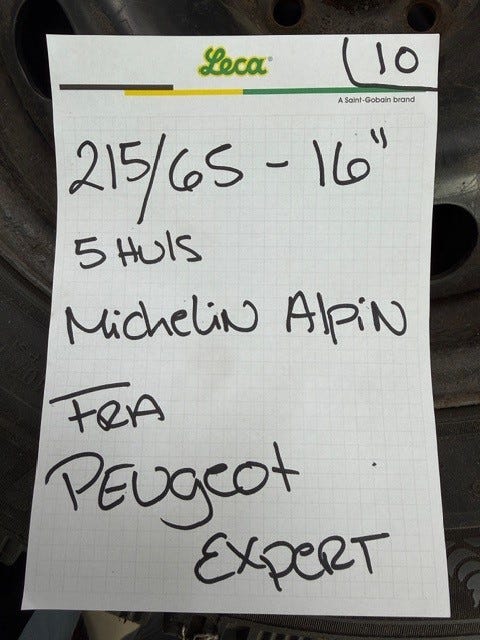 Leca®
10
A Saint-Gobain brand
215/65 - 16"
5 HUlS
MicheliN AlpiN
FRA
PEUgeot
EXPERT